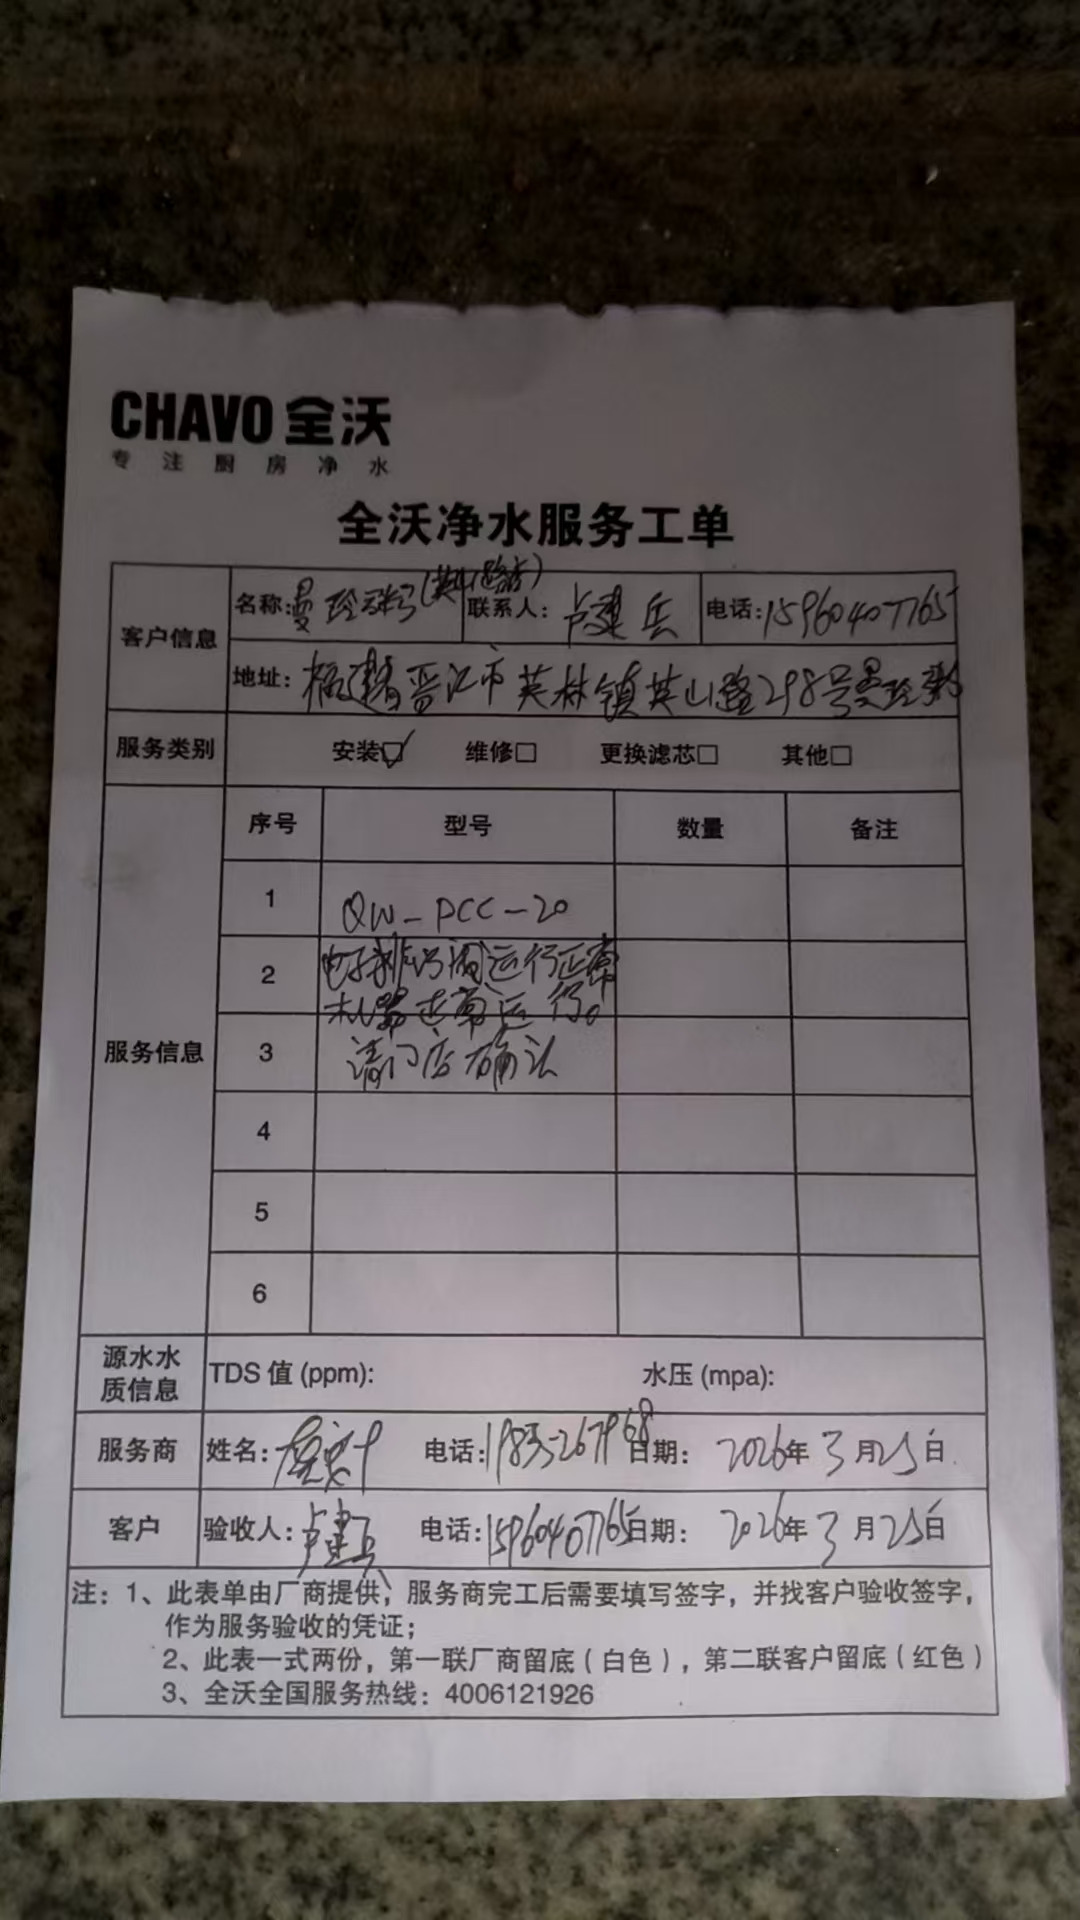 CHAVO 全沃
专注厨房净水
全沃净水服务工单
客户信息
名称:曼玲粥(英山路店) 联系人: 卢建兵 电话:15960407765
地址: 福建省晋江市英林镇英山路298号曼玲粥
服务类别 安装☑ 维修□ 更换滤芯□ 其他□
服务信息
序号 型号 数量 备注
1 QW-PCC-20
2 电子排污阀运行正常
机器正常运行。
3 请门店确认
4
5
6
源水水质信息 TDS 值 (ppm): 水压 (mpa):
服务商 姓名: 电话: 日期: 2026年 3 月 25 日
客户 验收人: 卢建兵 电话:15960407765 日期: 2026年 3 月 25 日
注: 1、此表单由厂商提供,服务商完工后需要填写签字,并找客户验收签字,
作为服务验收的凭证;
2、此表一式两份,第一联厂商留底(白色),第二联客户留底(红色)
3、全沃全国服务热线: 4006121926